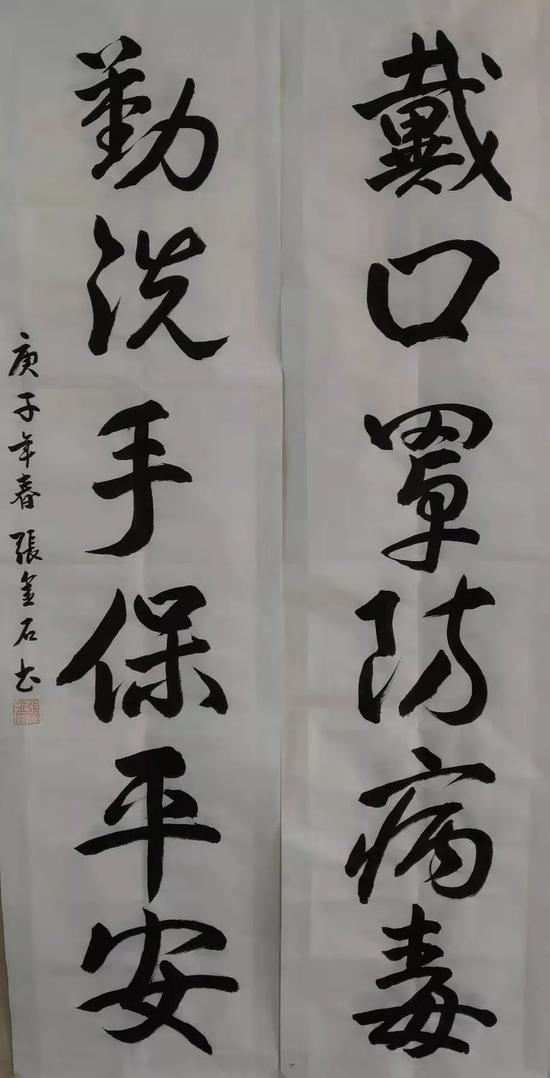 戴口罩防病毒
勤洗手保平安
庚子年春 張金石书